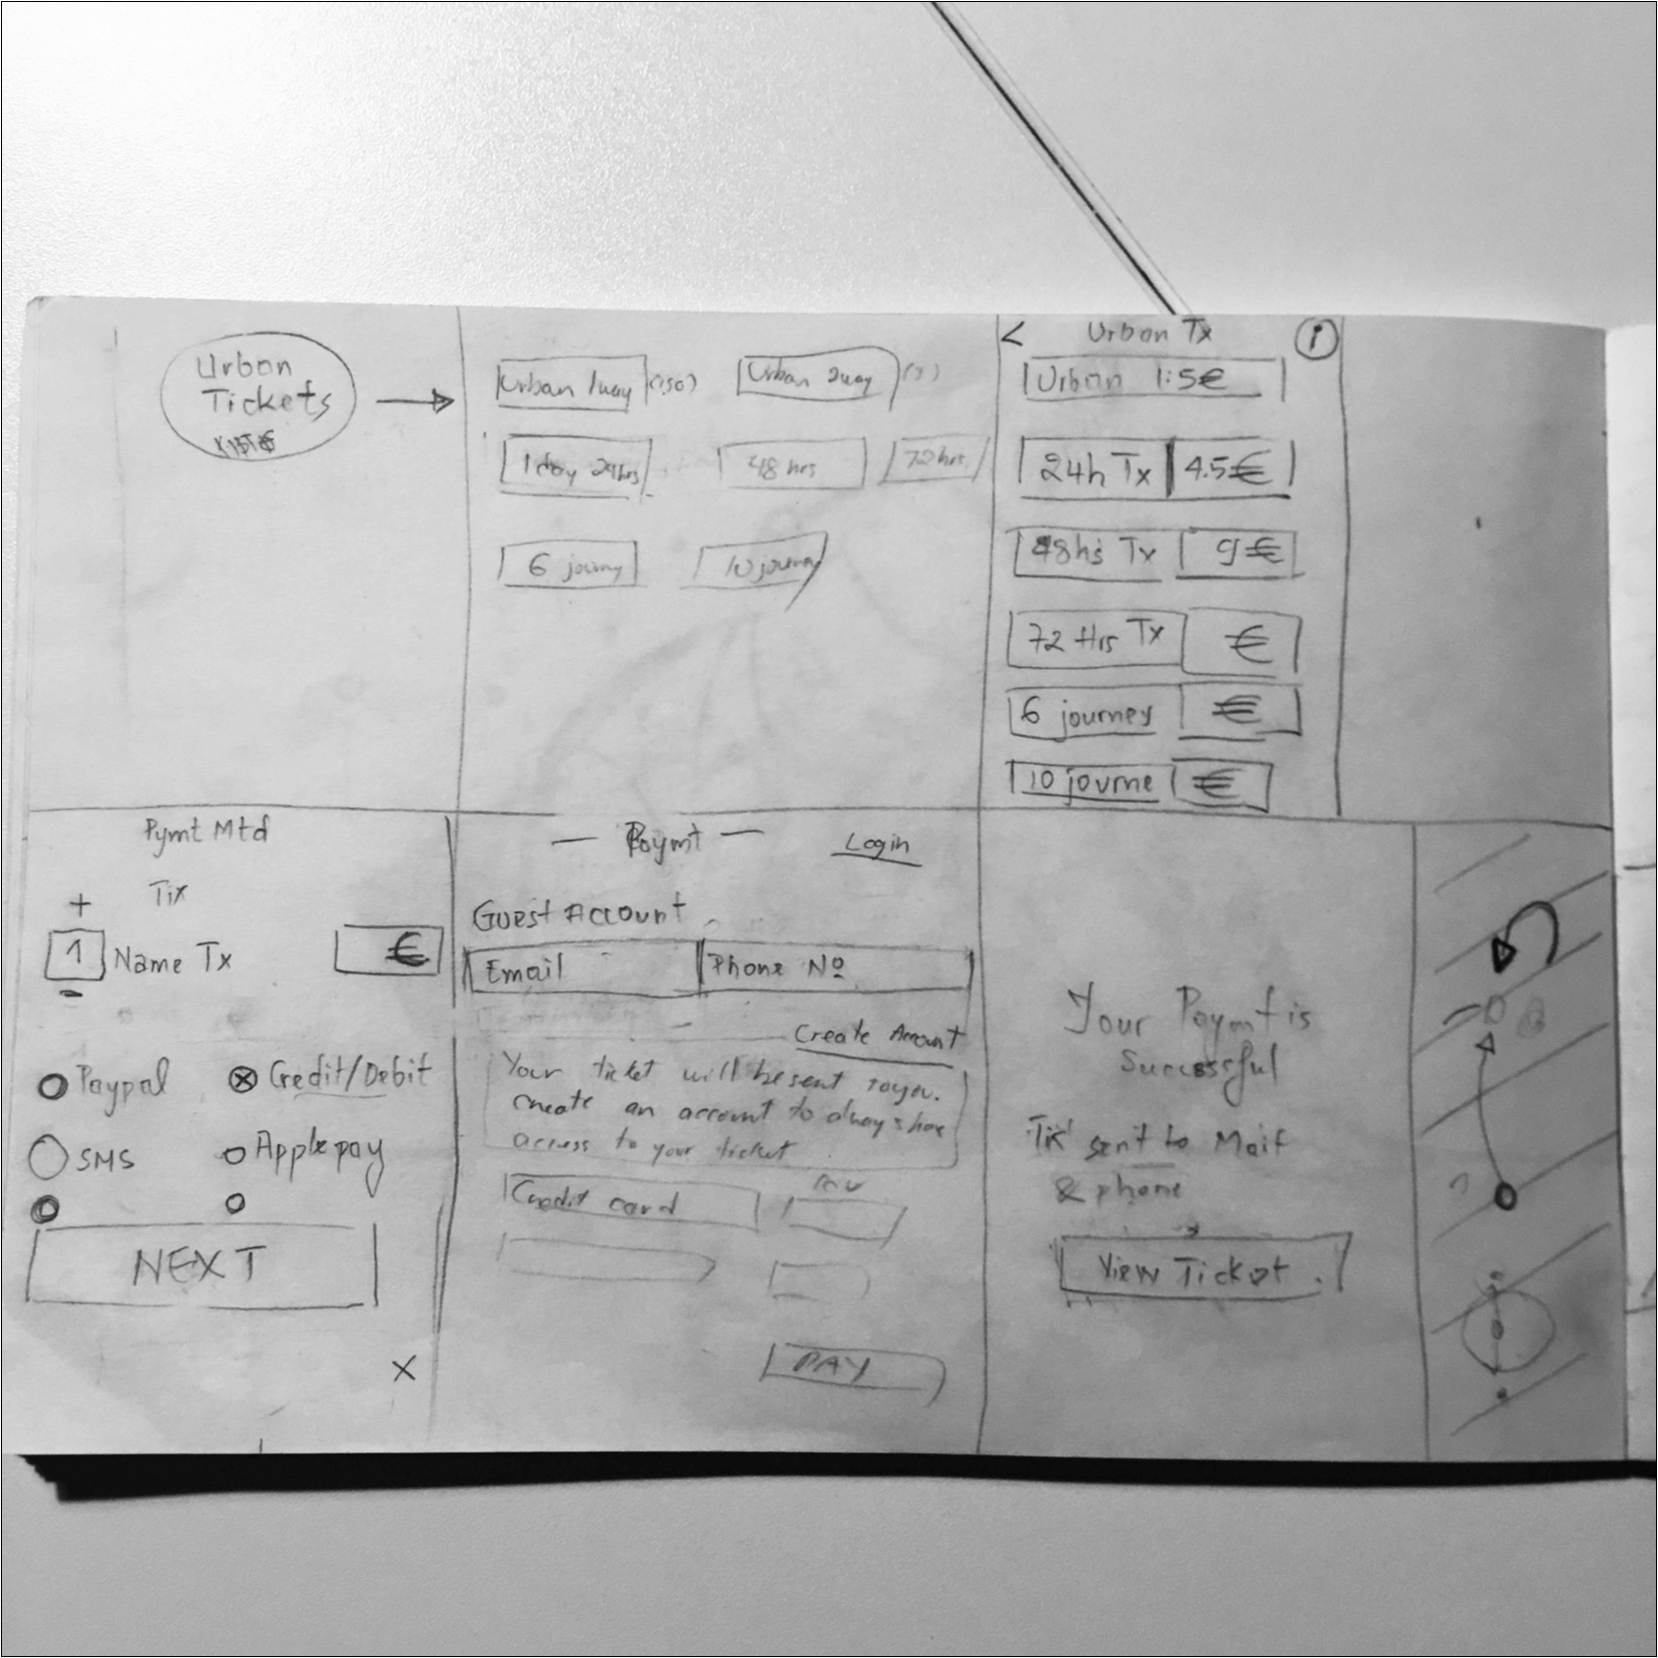 Urban
Tickets
Urban 1way (1.50) Urban 2way
1 day 24hrs 48 hrs 72 hrs
6 journy 10 journe
< Urban Tx i
Urban 1.5€
24h Tx 4.5€
48hs Tx 9€
72 Hrs Tx €
6 journey €
10 journe €
Pymt Mtd
Tix
+
1 Name Tx €
-
Paypal Credit/Debit
SMS Applepay
NEXT
X
— Paymt — Login
Guest Account
Email Phone Nº
Create Account
Your ticket will be sent to you.
create an account to always have
access to your ticket
Credit card
PAY
Your Paymt is
Successful
sent to Mail
& phone
View Ticket.